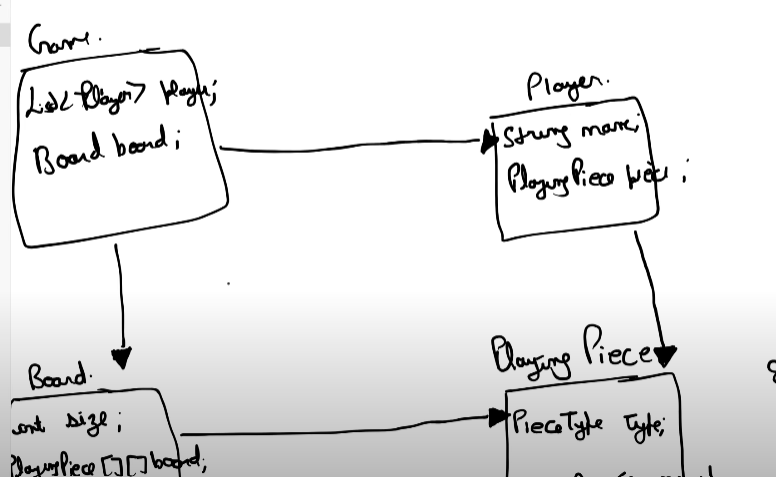 Game.
List<Player> player;
Board board;
Player.
String name;
PlayingPiece piece;
Board.
int size;
PlayingPiece[][] board;
Playing Piece
PieceType Type;